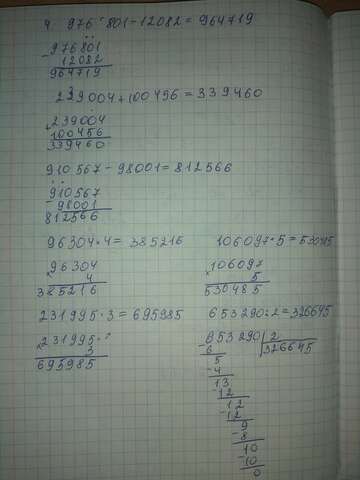 4. 976 801-12082=964719
976801
- 12082
964719
239004+100456=339460
239004
100456
339460
910567-98001=812566
-910567
98001
812566
96304·4=385216
×96304
4
385216
106097·5=530485
×106097
5
530485
231995·3=695985
×231995
3
695985
653290:2=326645
-653290|2
6 326645
5
-4
13
-12
12
-12
9
-8
10
-10
0